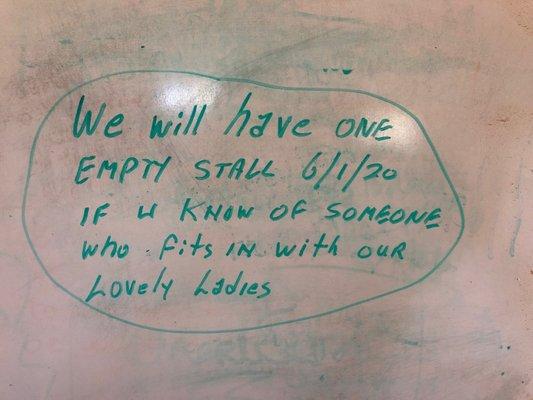 We will have ONE
EMPTY STALL 6/1/20
IF U KNOW OF SOMEONE
who fits IN with OUR
Lovely Ladies